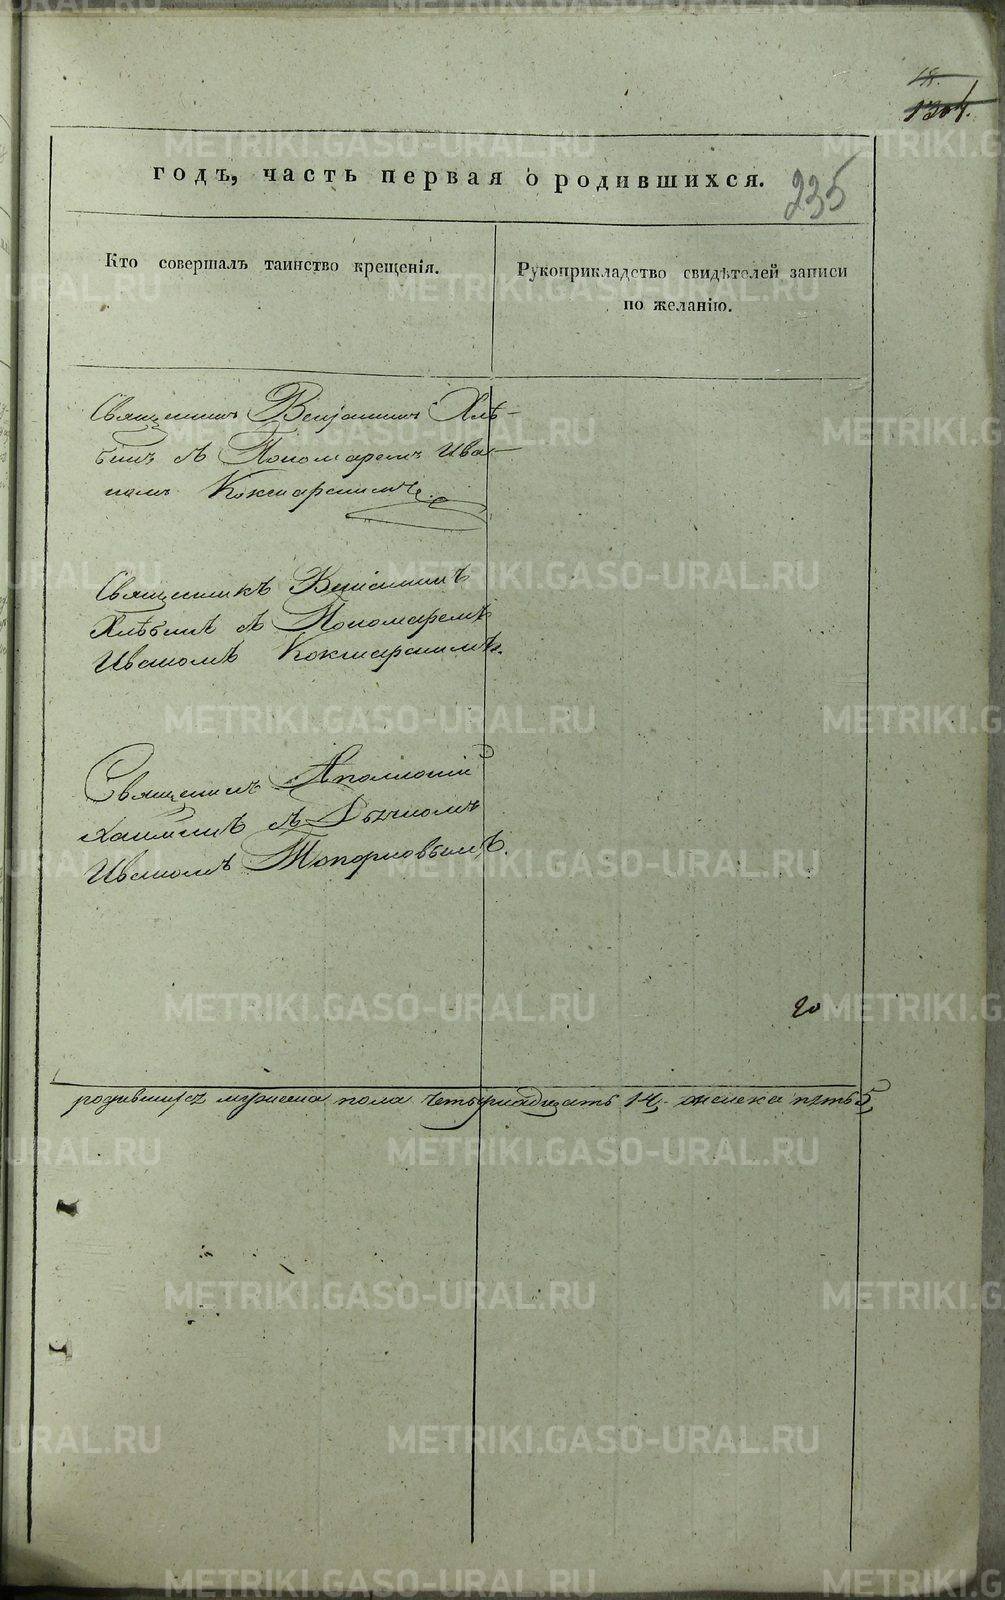 1304.
235
годъ, часть первая о родившихся.
Кто совершалъ таинство крещенія.
Рукоприкладство свидѣтелей записи
по желанію.
Священникъ Веніаминъ Хлѣ-
бинъ съ Пономаремъ Ива-
номъ Кокшарскимъ.
Священникъ Веніаминъ
Хлѣбинъ съ Пономаремъ
Иваномъ Кокшарскимъ.
Священникъ Аполлоній
съ Дьячкомъ
Иваномъ Топорковымъ.
20
родившихъ мужеска пола четырнадцать 14, женска пять 5,
METRIKI.GASO-URAL.RU